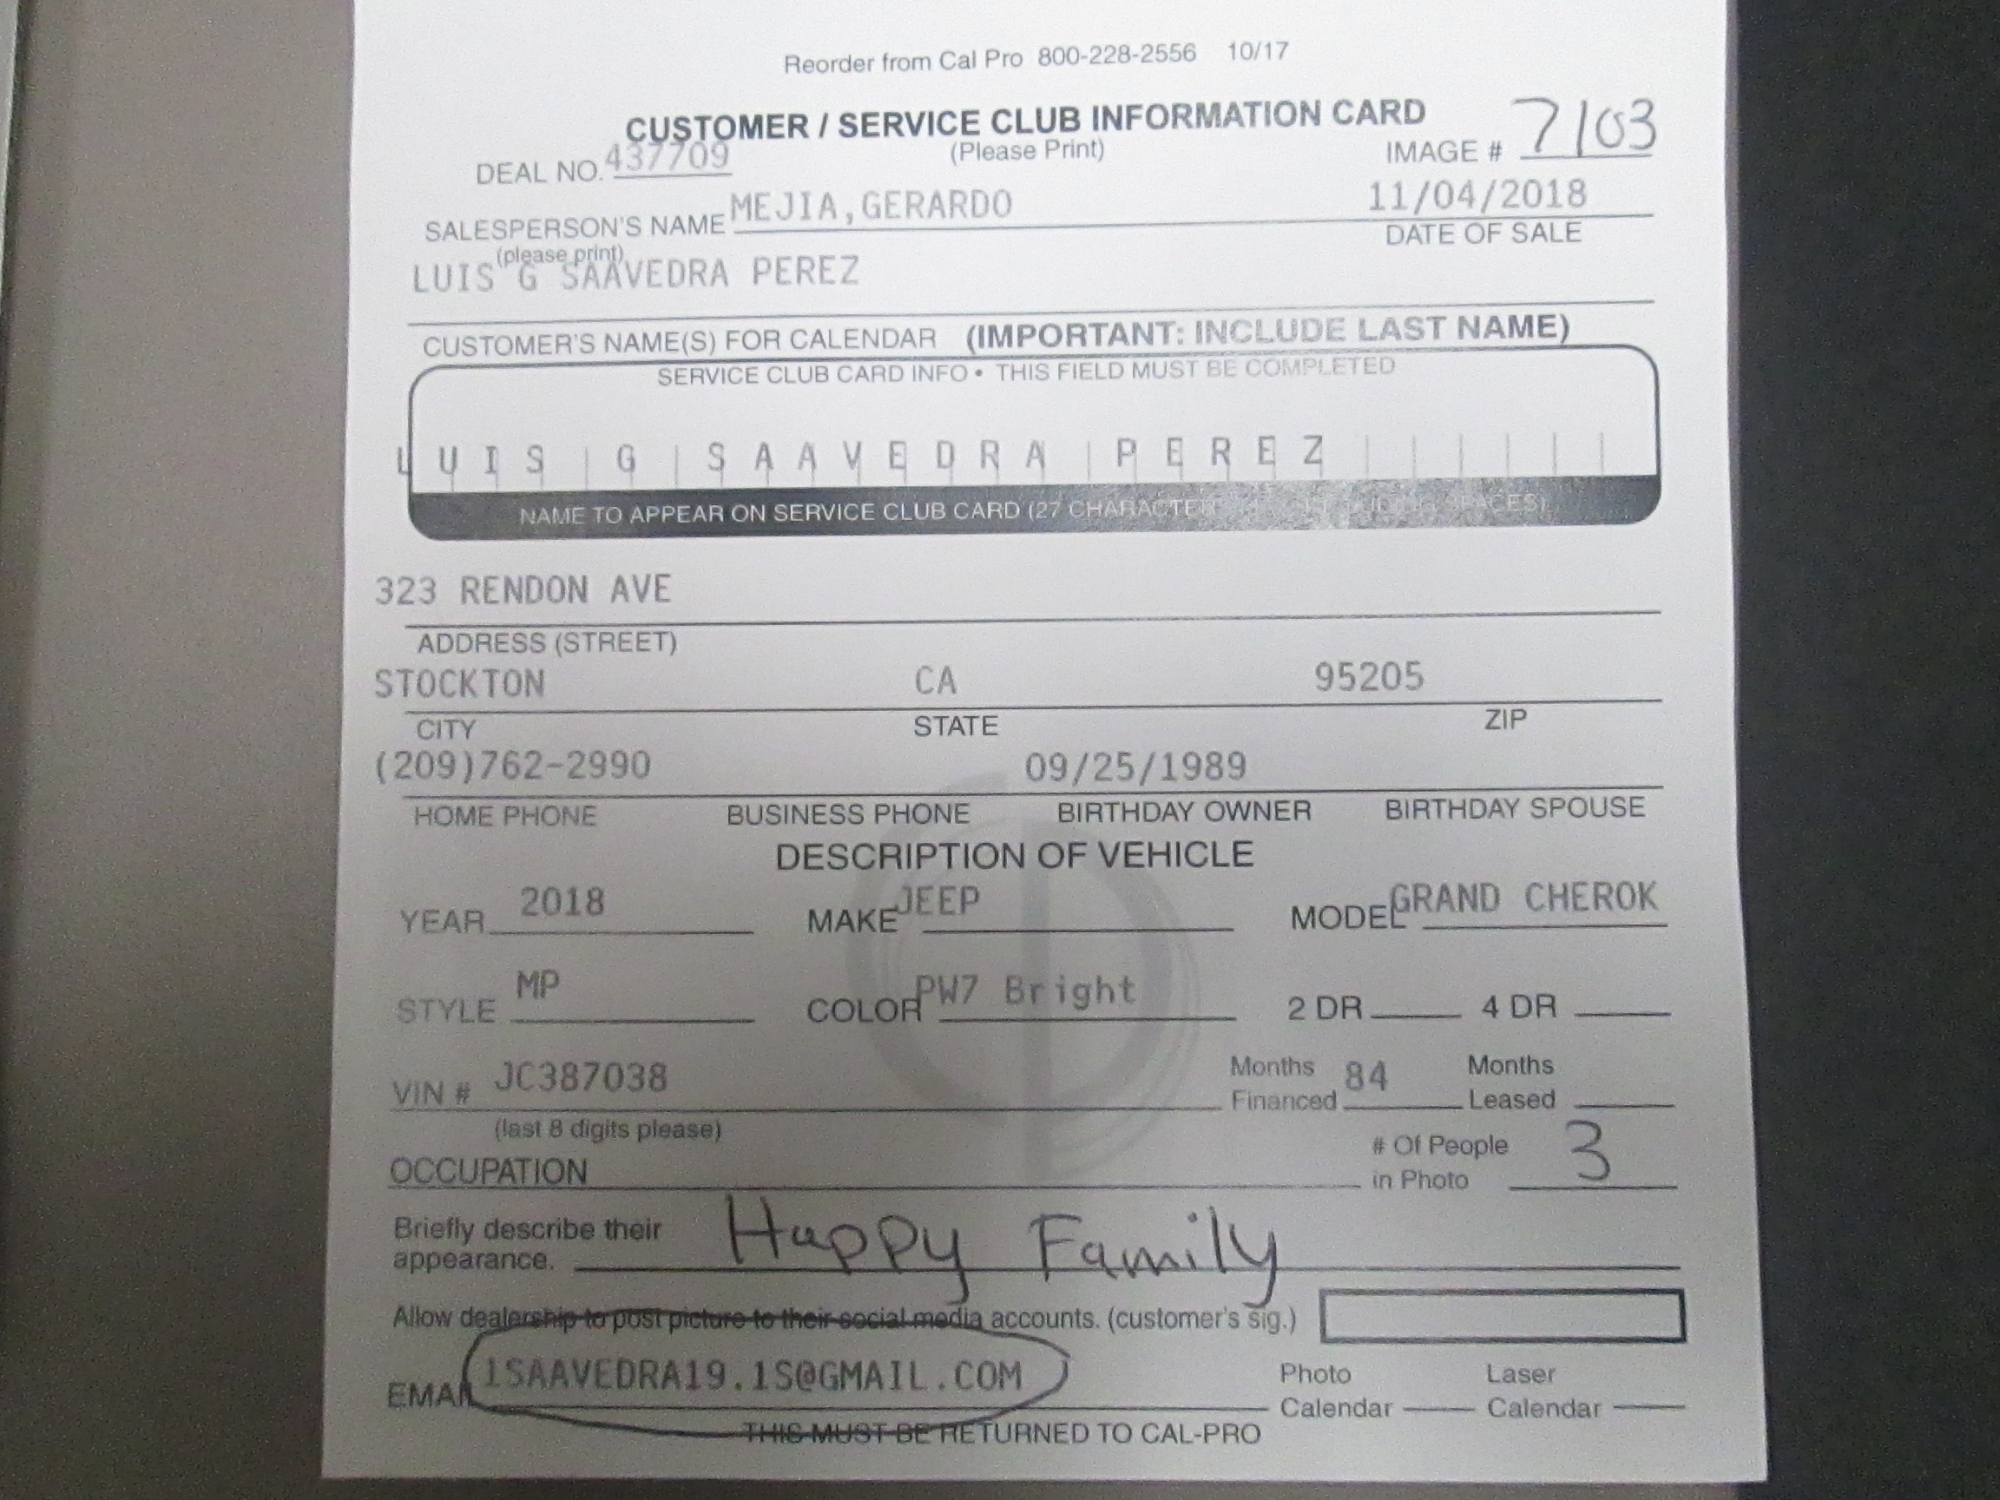 Reorder from Cal Pro 800-228-2556 10/17
CUSTOMER / SERVICE CLUB INFORMATION CARD
(Please Print)
DEAL NO. 437709
IMAGE # 7103
SALESPERSON'S NAME MEJIA,GERARDO
11/04/2018
(please print)
DATE OF SALE
LUIS G SAAVEDRA PEREZ
CUSTOMER'S NAME(S) FOR CALENDAR (IMPORTANT: INCLUDE LAST NAME)
SERVICE CLUB CARD INFO • THIS FIELD MUST BE COMPLETED
LUIS G SAAVEDRA PEREZ
NAME TO APPEAR ON SERVICE CLUB CARD (27 CHARACTER SPACES)
323 RENDON AVE
ADDRESS (STREET)
STOCKTON CA 95205
CITY STATE ZIP
(209)762-2990 09/25/1989
HOME PHONE BUSINESS PHONE BIRTHDAY OWNER BIRTHDAY SPOUSE
DESCRIPTION OF VEHICLE
YEAR 2018 MAKE JEEP MODEL GRAND CHEROK
STYLE MP COLOR PW7 Bright 2 DR 4 DR
VIN # JC387038 Months Financed 84 Months Leased
(last 8 digits please)
OCCUPATION # Of People in Photo 3
Briefly describe their appearance. Happy Family
Allow dealership to post picture to their social media accounts. (customer's sig.)
EMAIL 1SAAVEDRA19.1S@GMAIL.COM Photo Calendar Laser Calendar
THIS MUST BE RETURNED TO CAL-PRO